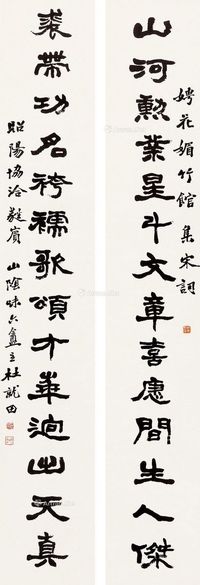 山河勳業星斗文章喜應間生人傑
娉花媚竹館集宋詞
裘帶功名袴襦歌頌才華迥出天真
昭陽協洽蕤賓
山陰味六盦主杜就田